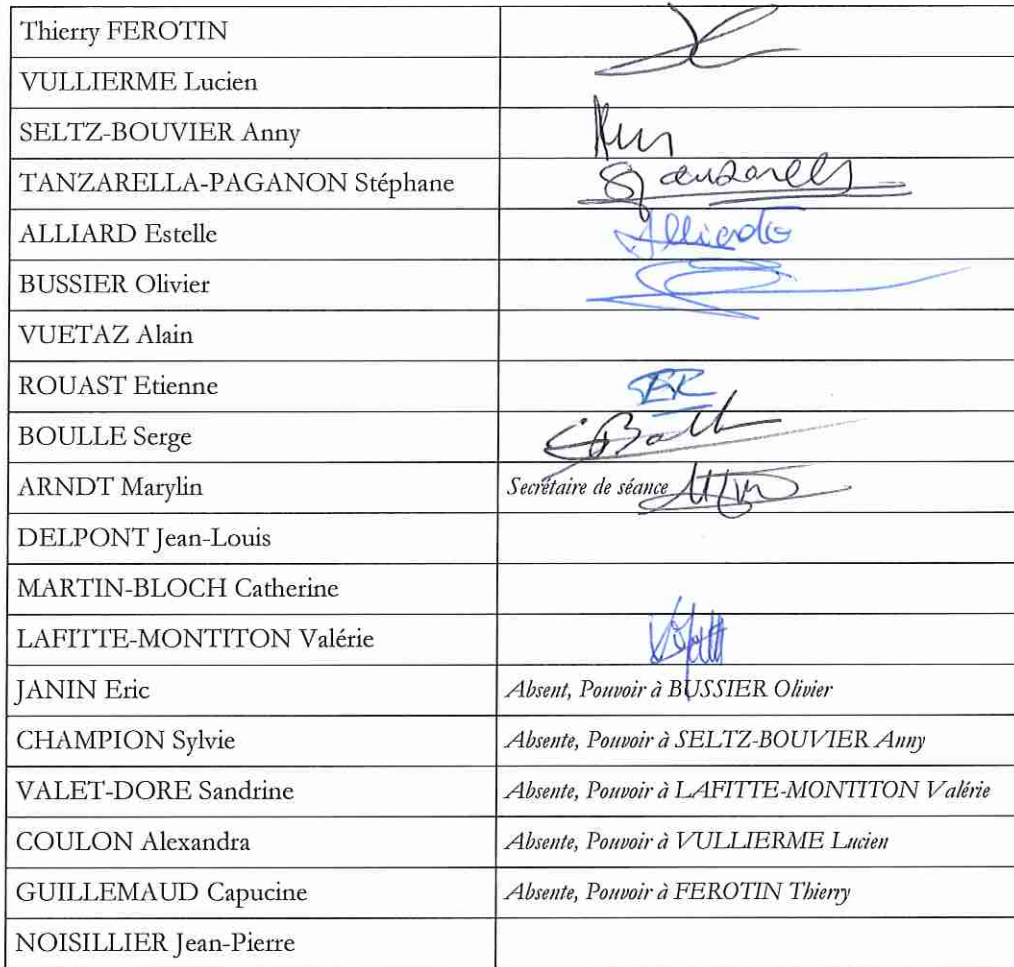 Thierry FEROTIN
VULLIERME Lucien
SELTZ-BOUVIER Anny
TANZARELLA-PAGANON Stéphane
ALLIARD Estelle
BUSSIER Olivier
VUETAZ Alain
ROUAST Etienne
BOULLE Serge
ARNDT Marylin Secrétaire de séance
DELPONT Jean-Louis
MARTIN-BLOCH Catherine
LAFITTE-MONTITON Valérie
JANIN Eric Absent, Pouvoir à BUSSIER Olivier
CHAMPION Sylvie Absente, Pouvoir à SELTZ-BOUVIER Anny
VALET-DORE Sandrine Absente, Pouvoir à LAFITTE-MONTITON Valérie
COULON Alexandra Absente, Pouvoir à VULLIERME Lucien
GUILLEMAUD Capucine Absente, Pouvoir à FEROTIN Thierry
NOISILLIER Jean-Pierre